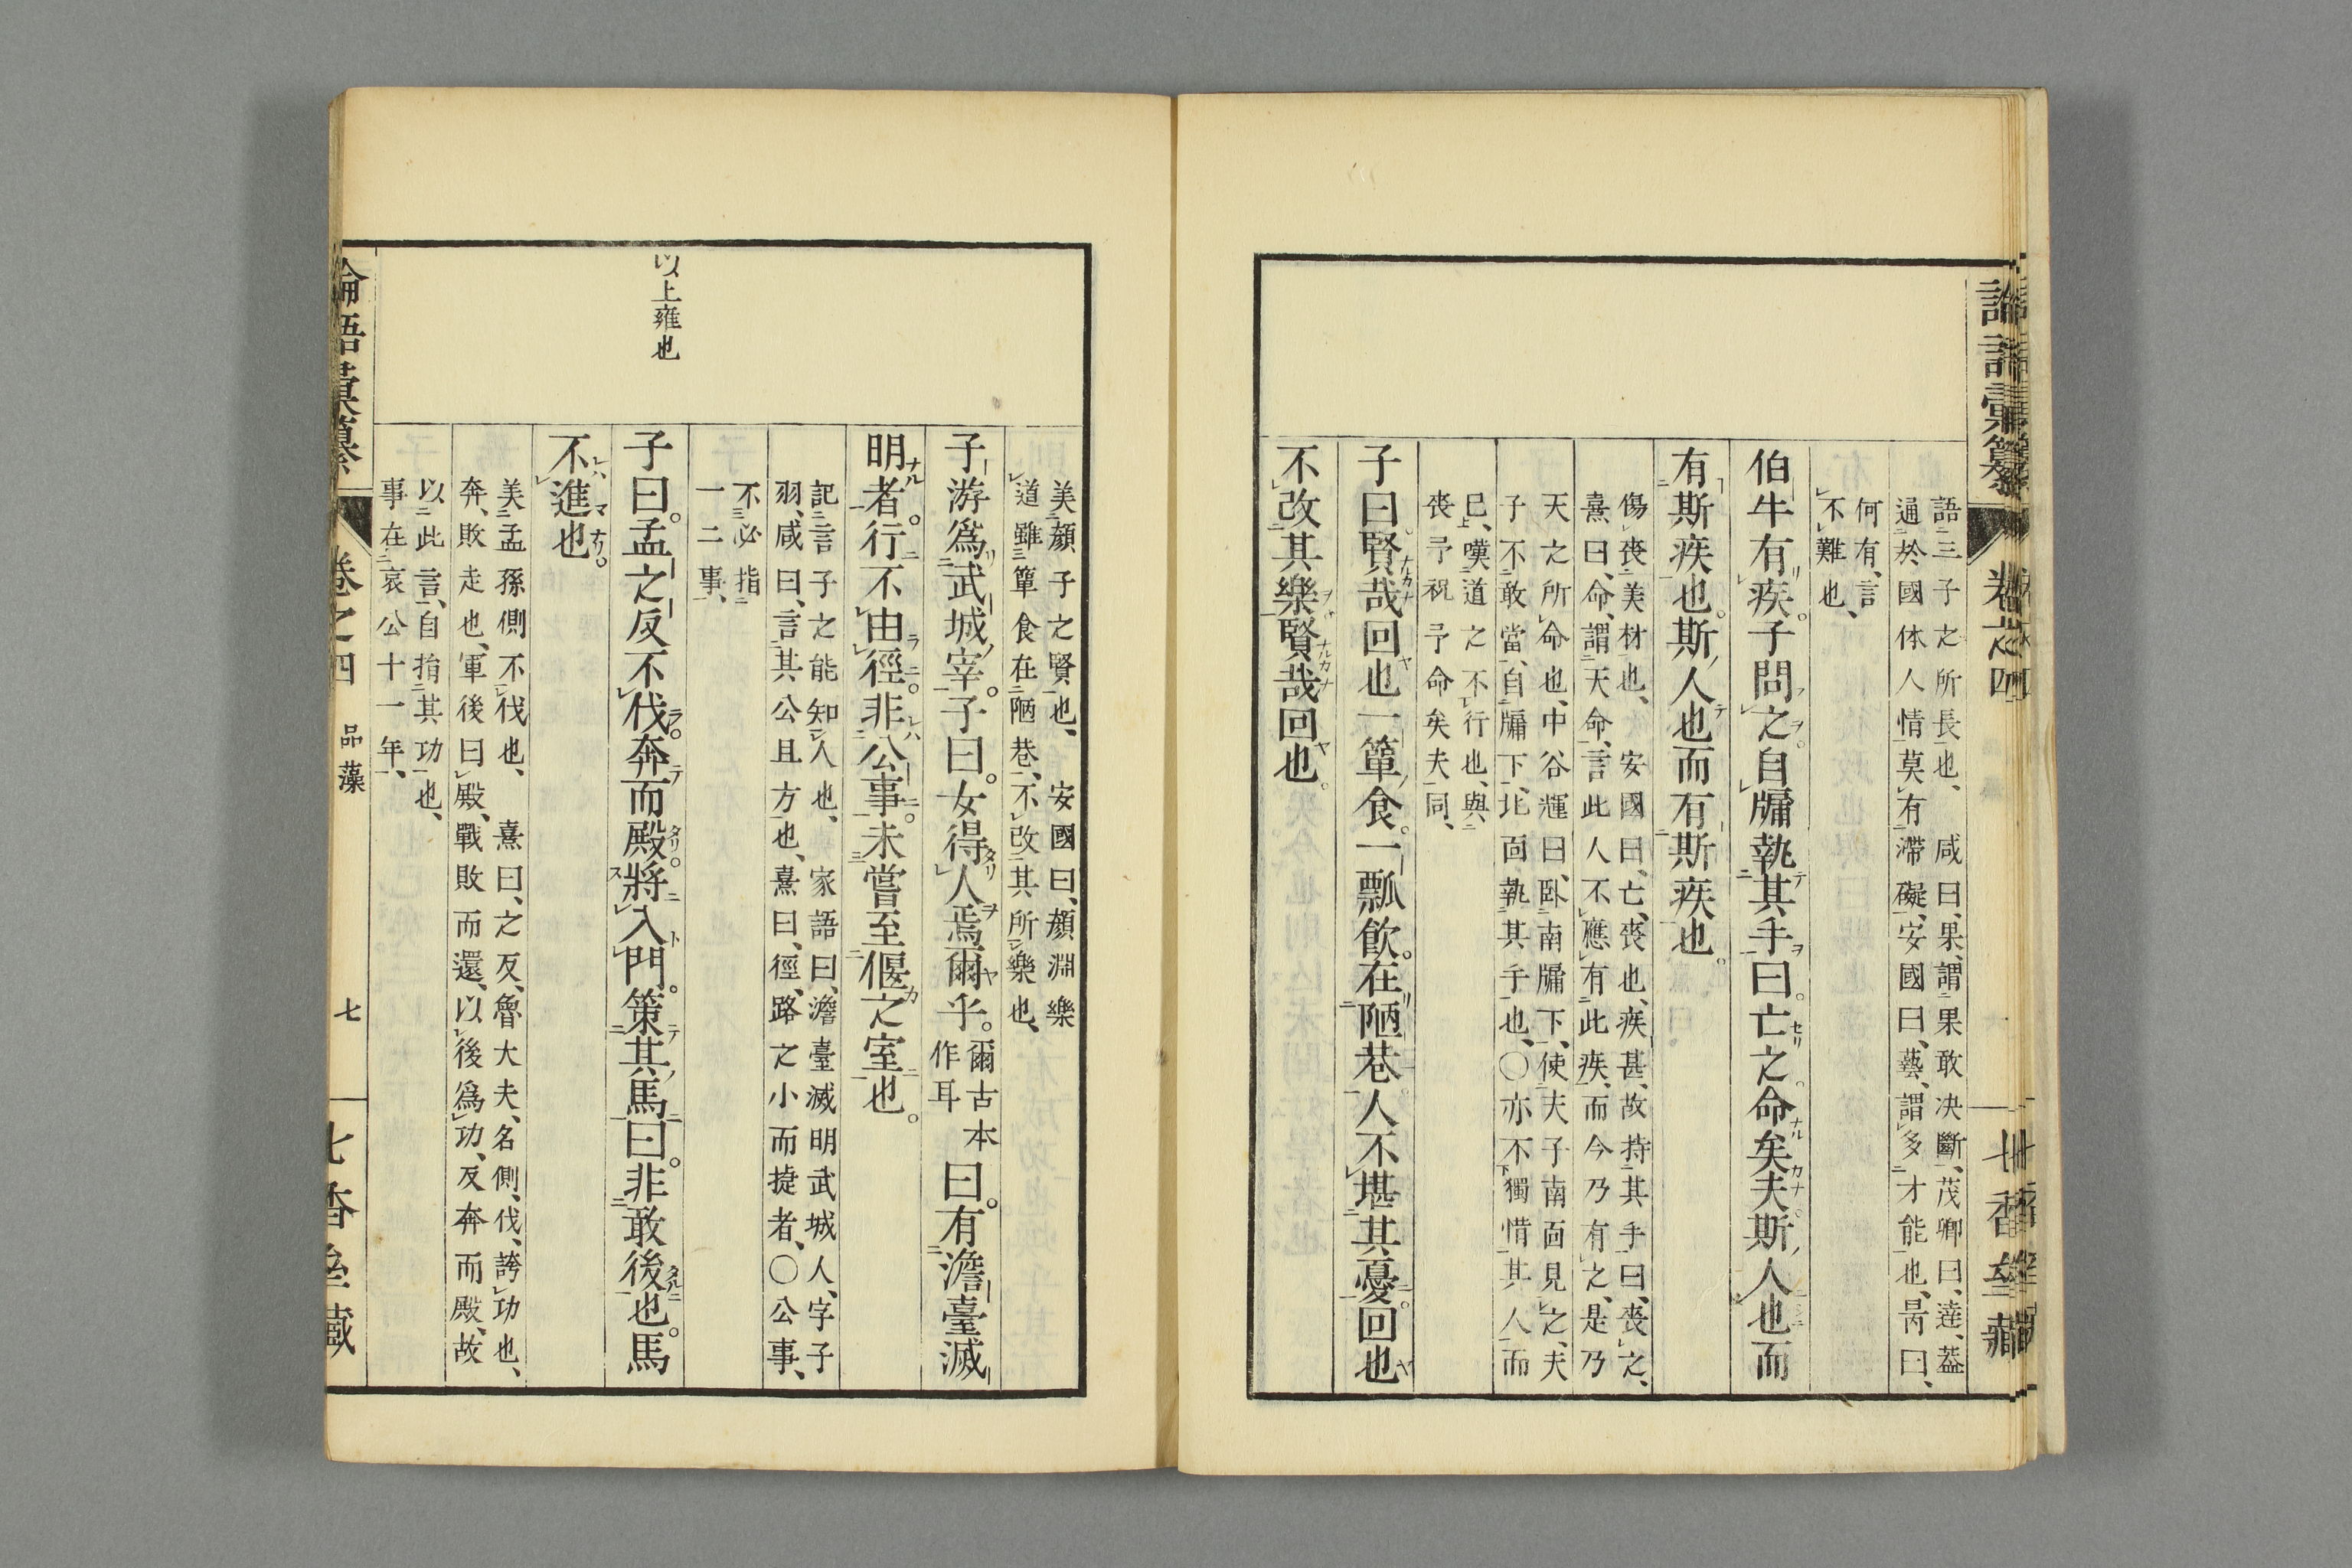 語三子之所長也、咸曰、果、謂果敢决斷、茂卿曰、達、蓋
通於國体人情莫有滯礙、安國曰、藝、謂多才能也、昺曰、
何有、言
不難也、
伯牛有疾。子問之。自牖執其手曰。亡之。命矣夫。斯人也而
有斯疾也。斯人也而有斯疾也。
傷喪美材也、安國曰、亡、喪也、疾甚、故持其手曰、喪之、
熹曰、命、謂天命、言此人不應有此疾、而今乃有之、是乃
天之所命也、中谷煇曰、臥南牖下、使夫子南面見之、夫
子不敢當、自牖下、北面執其手也、〇亦不獨惜其人而
已、嘆道之不行也、與
喪予祝予命矣夫同、
子曰。賢哉回也一簞食。一瓢飮。在陋巷。人不堪其憂。回也
不改其樂賢哉回也。
論語彙纂
卷之四
七香堂藏
美顏子之賢也、安國曰、顏淵樂
道雖簞食在陋巷、不改其所樂也、
子游爲武城宰。子曰。女得人焉爾乎。爾古本
作耳
曰。有澹臺滅
明者。行不由徑。非公事。未嘗至偃之室也。
記言子之能知人也、家語曰、澹臺滅明武城人、字子
羽、咸曰、言其公且方也、熹曰、徑、路之小而捷者、〇公事、
不必指
一二事、
以上雍也
子曰。孟之反不伐。奔而殿。將入門。策其馬曰。非敢後也。馬
不進也。
美孟孫側不伐也、熹曰、之反、魯大夫、名側、伐、誇功也、
奔、敗走也、軍後曰殿、戰敗而還、以後爲功、反奔而殿、故
以此言、自揜其功也、
事在哀公十一年、
論語彙纂
卷之四
品藻
七
七香堂藏